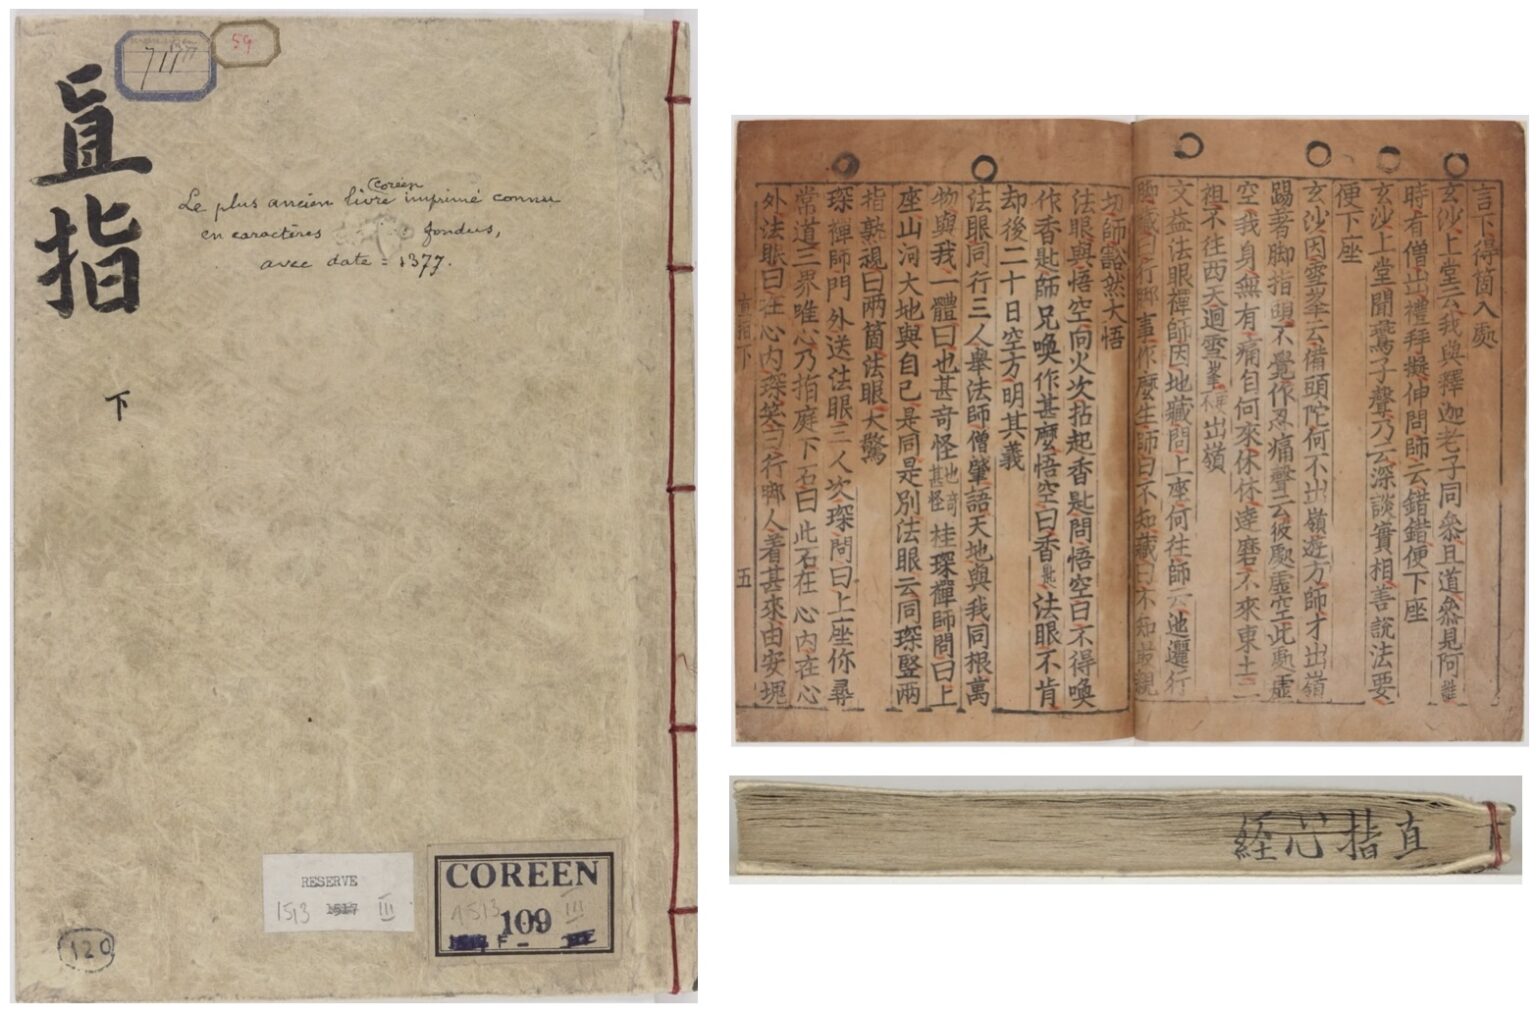 59
直指
下
Coréen
Le plus ancien livre imprimé connu
en caractères fondus,
avec date = 1377.
RESERVE
1513 1517 III
COREEN
1513 109 III
120
言下得箇入處
玄沙上堂云我與釋迦老子同叅且道叅見阿誰
時有僧出禮拜擬伸問師云錯錯便下座
玄沙上堂聞鷰子聲乃云深談實相善說法要
便下座
玄沙因雪峯云備頭陀何不出嶺遊方師才出嶺
踢著脚指頭不覺作忍痛聲云彼處虛空此處虛
空我身無有痛自何來休休達磨不來東土二
祖不往西天迴雪峯更不出嶺
文益法眼禪師因地藏問上座何往師云迤邐行
脚藏曰行脚事作麽生師曰不知藏曰不知最親
切師豁然大悟
法眼與悟空向火次拈起香匙問悟空曰不得喚
作香匙師兄喚作甚麽悟空曰香匙法眼不肯
却後二十日空方明其義
法眼同行三人舉法師僧肇語天地與我同根萬
物與我一體曰也甚奇怪也奇甚怪桂琛禪師問曰上
座山河大地與自己是同是別法眼云同琛竪兩
指熟視曰兩箇法眼大驚
琛禪師門外送法眼三人次琛問曰上座你尋
常道三界唯心乃指庭下石曰此石在心內在心
外法眼曰在心內琛笑曰行脚人着甚來由安塊
直指下 五
直指心經
下